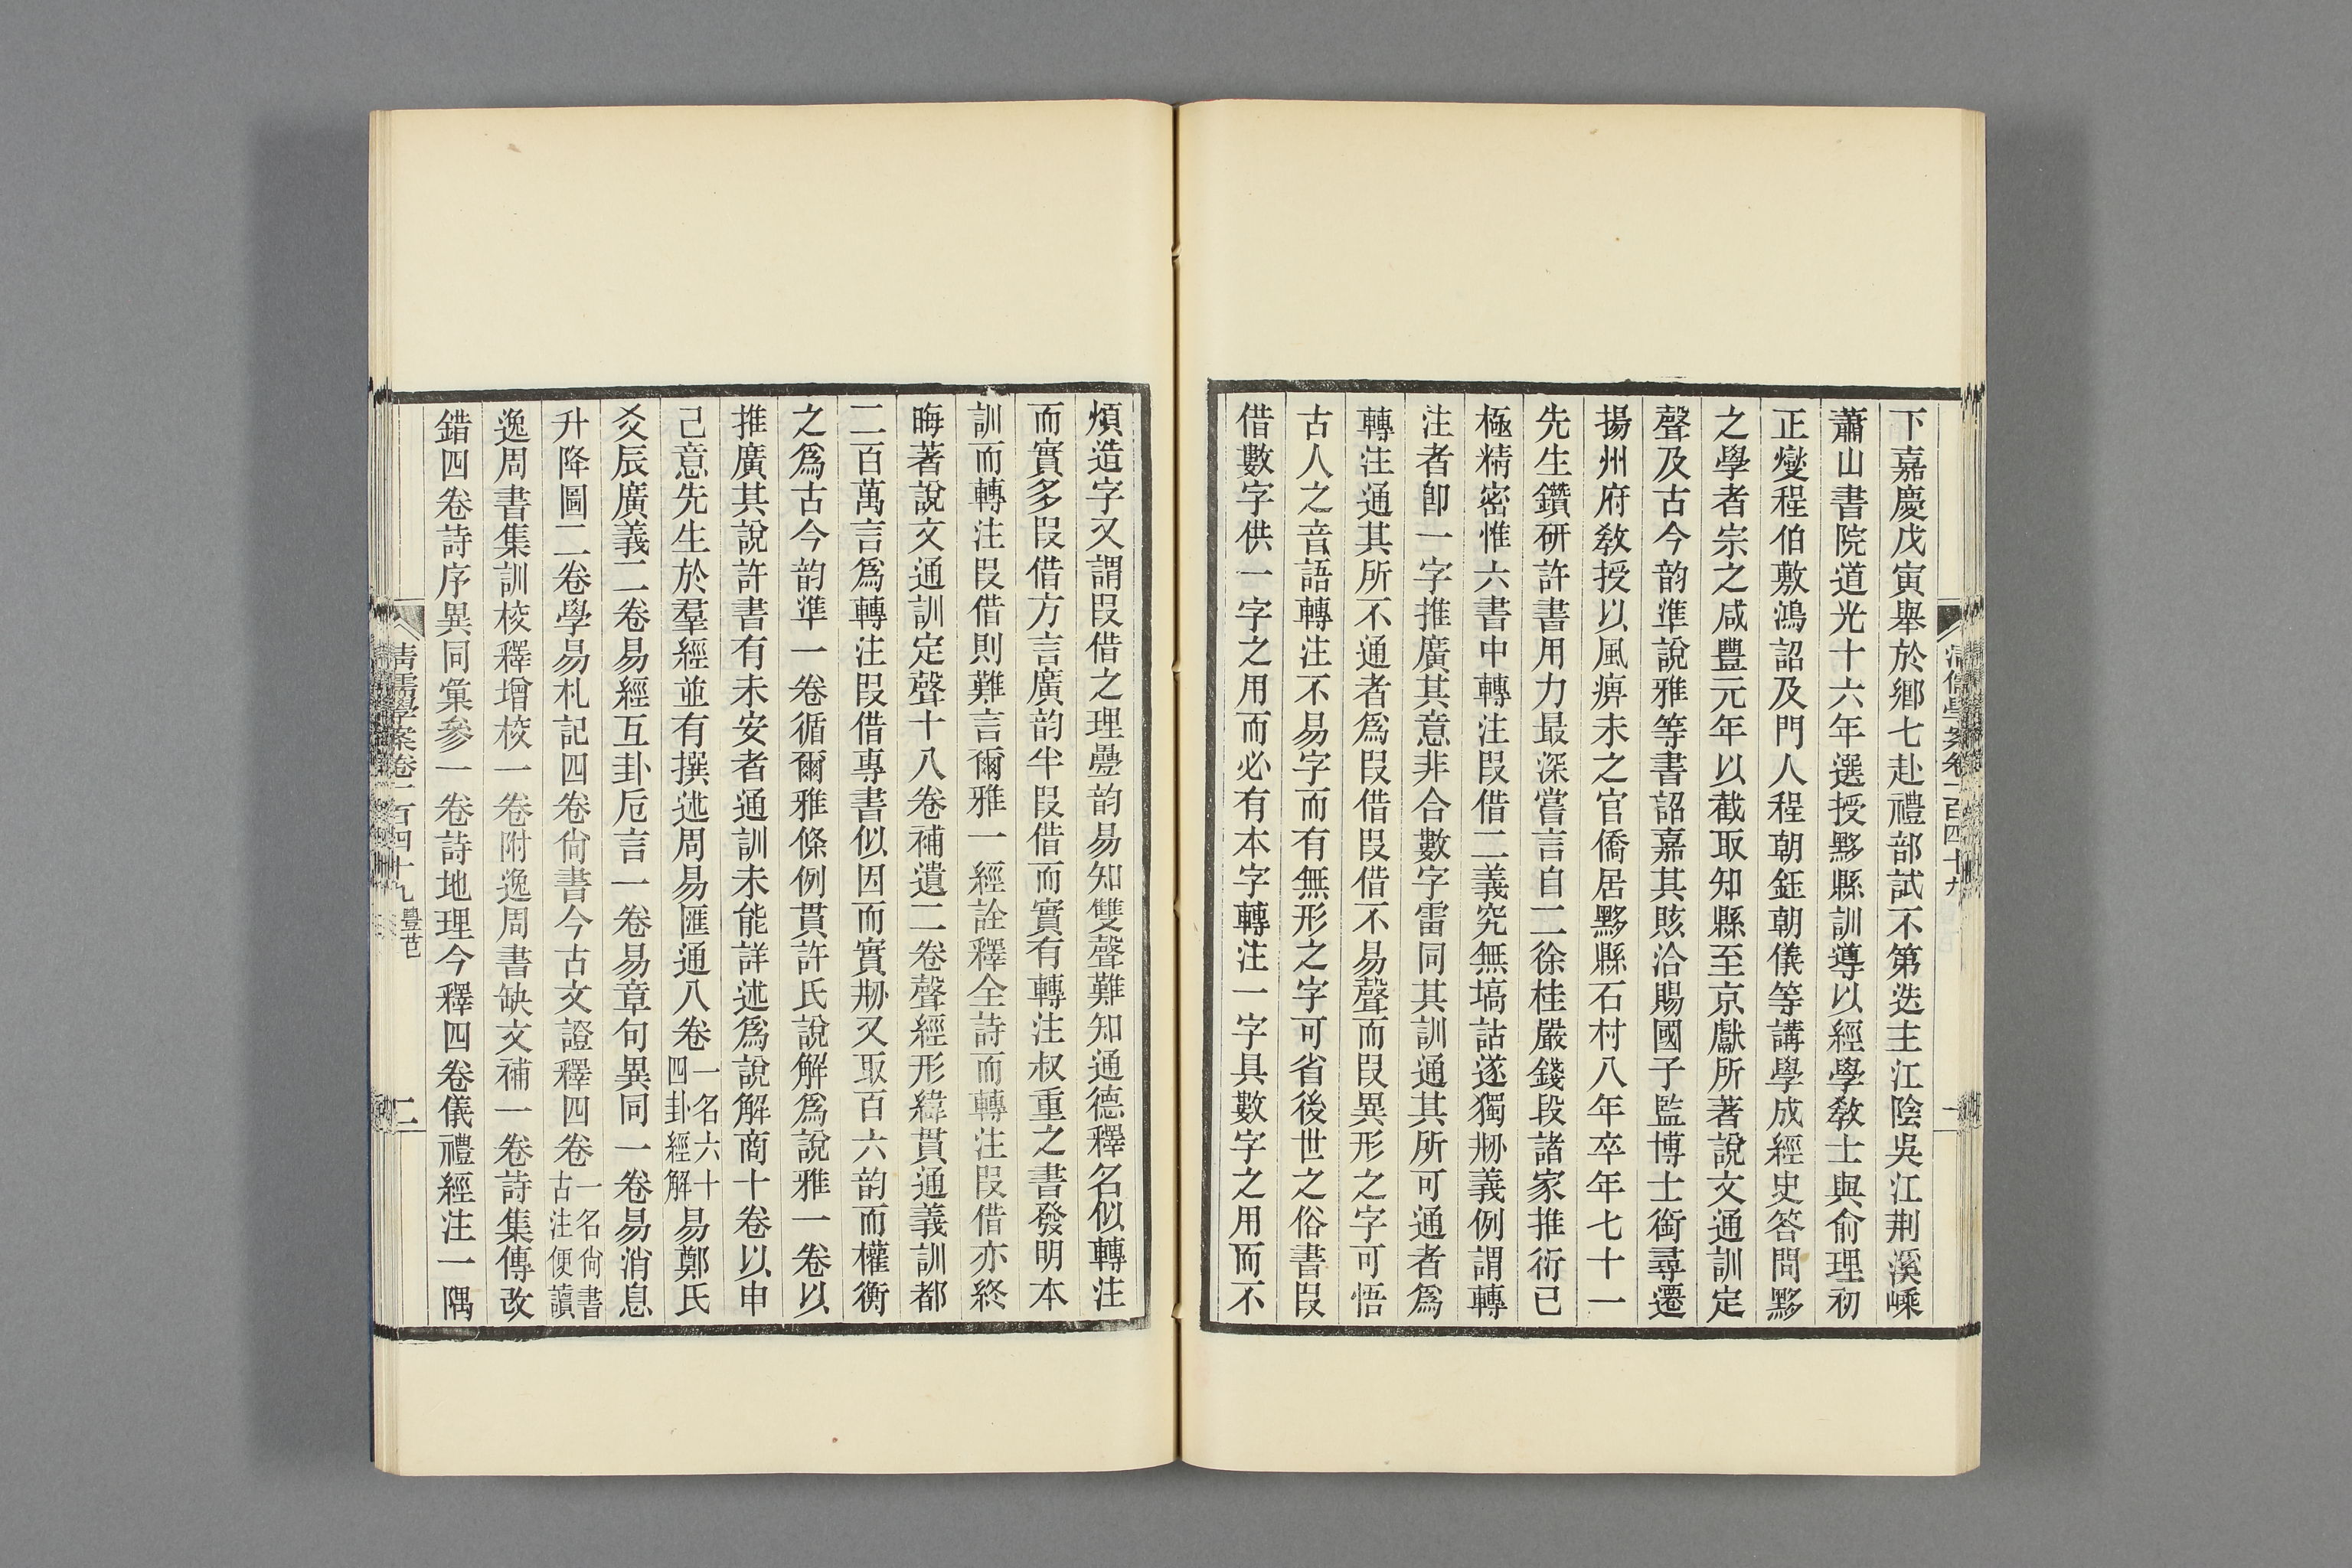 下嘉慶戊寅舉於鄉七赴禮部試不第迭主江陰吳江荆溪嵊
蕭山書院道光十六年選授黟縣訓導以經學敎士與俞理初
正燮程伯敷鴻詔及門人程朝鈺朝儀等講學成經史答問黟
之學者宗之咸豐元年以截取知縣至京獻所著說文通訓定
聲及古今韵準說雅等書詔嘉其賅洽賜國子監博士銜尋遷
揚州府敎授以風痹未之官僑居黟縣石村八年卒年七十一
先生鑽研許書用力最深嘗言自二徐桂嚴錢段諸家推衍已
極精密惟六書中轉注叚借二義究無塙詁遂獨刱義例謂轉
注者卽一字推廣其意非合數字雷同其訓通其所可通者爲
轉注通其所不通者爲叚借叚借不易聲而叚異形之字可悟
古人之音語轉注不易字而有無形之字可省後世之俗書叚
借數字供一字之用而必有本字轉注一字具數字之用而不
煩造字又謂叚借之理疊韵易知雙聲難知通德釋名似轉注
而實多叚借方言廣韵半叚借而實有轉注叔重之書發明本
訓而轉注叚借則難言爾雅一經詮釋全詩而轉注叚借亦終
晦著說文通訓定聲十八卷補遺二卷聲經形緯貫通義訓都
二百萬言爲轉注叚借專書似因而實刱又取百六韵而權衡
之爲古今韵準一卷循爾雅條例貫許氏說解爲說雅一卷以
推廣其說許書有未安者通訓未能詳述爲說解商十卷以申
己意先生於羣經並有撰述周易匯通八卷一名六十四卦經解易鄭氏
爻辰廣義二卷易經互卦卮言一卷易章句異同一卷易消息
升降圖二卷學易札記四卷尙書今古文證釋四卷一名尙書古注便讀
逸周書集訓校釋增校一卷附逸周書缺文補一卷詩集傳改
錯四卷詩序異同彙參一卷詩地理今釋四卷儀禮經注一隅
清儒學案卷一百四十九 豐芑
二